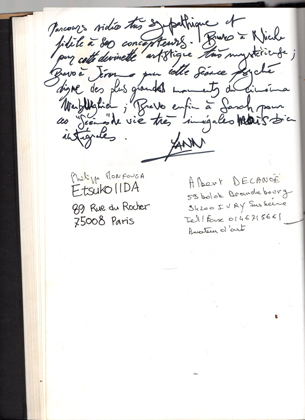 Parcours vidéo très sympathique et
fidèle à ses concepteurs. Bravo à Nicole
pour cette devinette artistique très mystérieuse ;
Bravo à Jérome pour cette séance psyché
digne des plus grands moments du cinéma
; Bravo enfin à Sarah pour
ce de vie très inégales mais bien
intégrales.
YANN
Philippe MONFOUGA
Etsuko IIDA
89 Rue du Rocher
75008 Paris
Albert DELANOË
53 bd de Brandebourg
94200 IVRY Sur Seine
Tel/Fax 0146715661
Amateur d'art